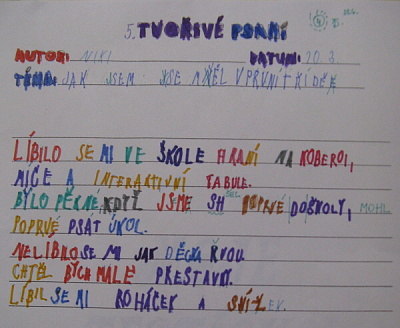 5. TVOŘIVÉ PSANÍ
AUTOR: NIKI DATUM: 20.3.
TÉMA: JAK JSEM JSE MĚL V PRVNÍ TŘÍDĚ
LÍBILO SE MI VE ŠKOLE HRANÍ NA KOBERCI,
MÍČE A INTERAKTIVNÍ TABULE.
BYLO PĚKNE, KDYŽ JSME ŠLI POPRVÉ DO ŠKOLY, MOHL
POPRVÉ PSÁT ÚKOL.
NELÍBILO SE MI JAK DĚCKA ŘVOU.
CHTĚL BYCH MALÉ PŘESTAVKY.
LÍBIL SE MI ROHÁČEK A